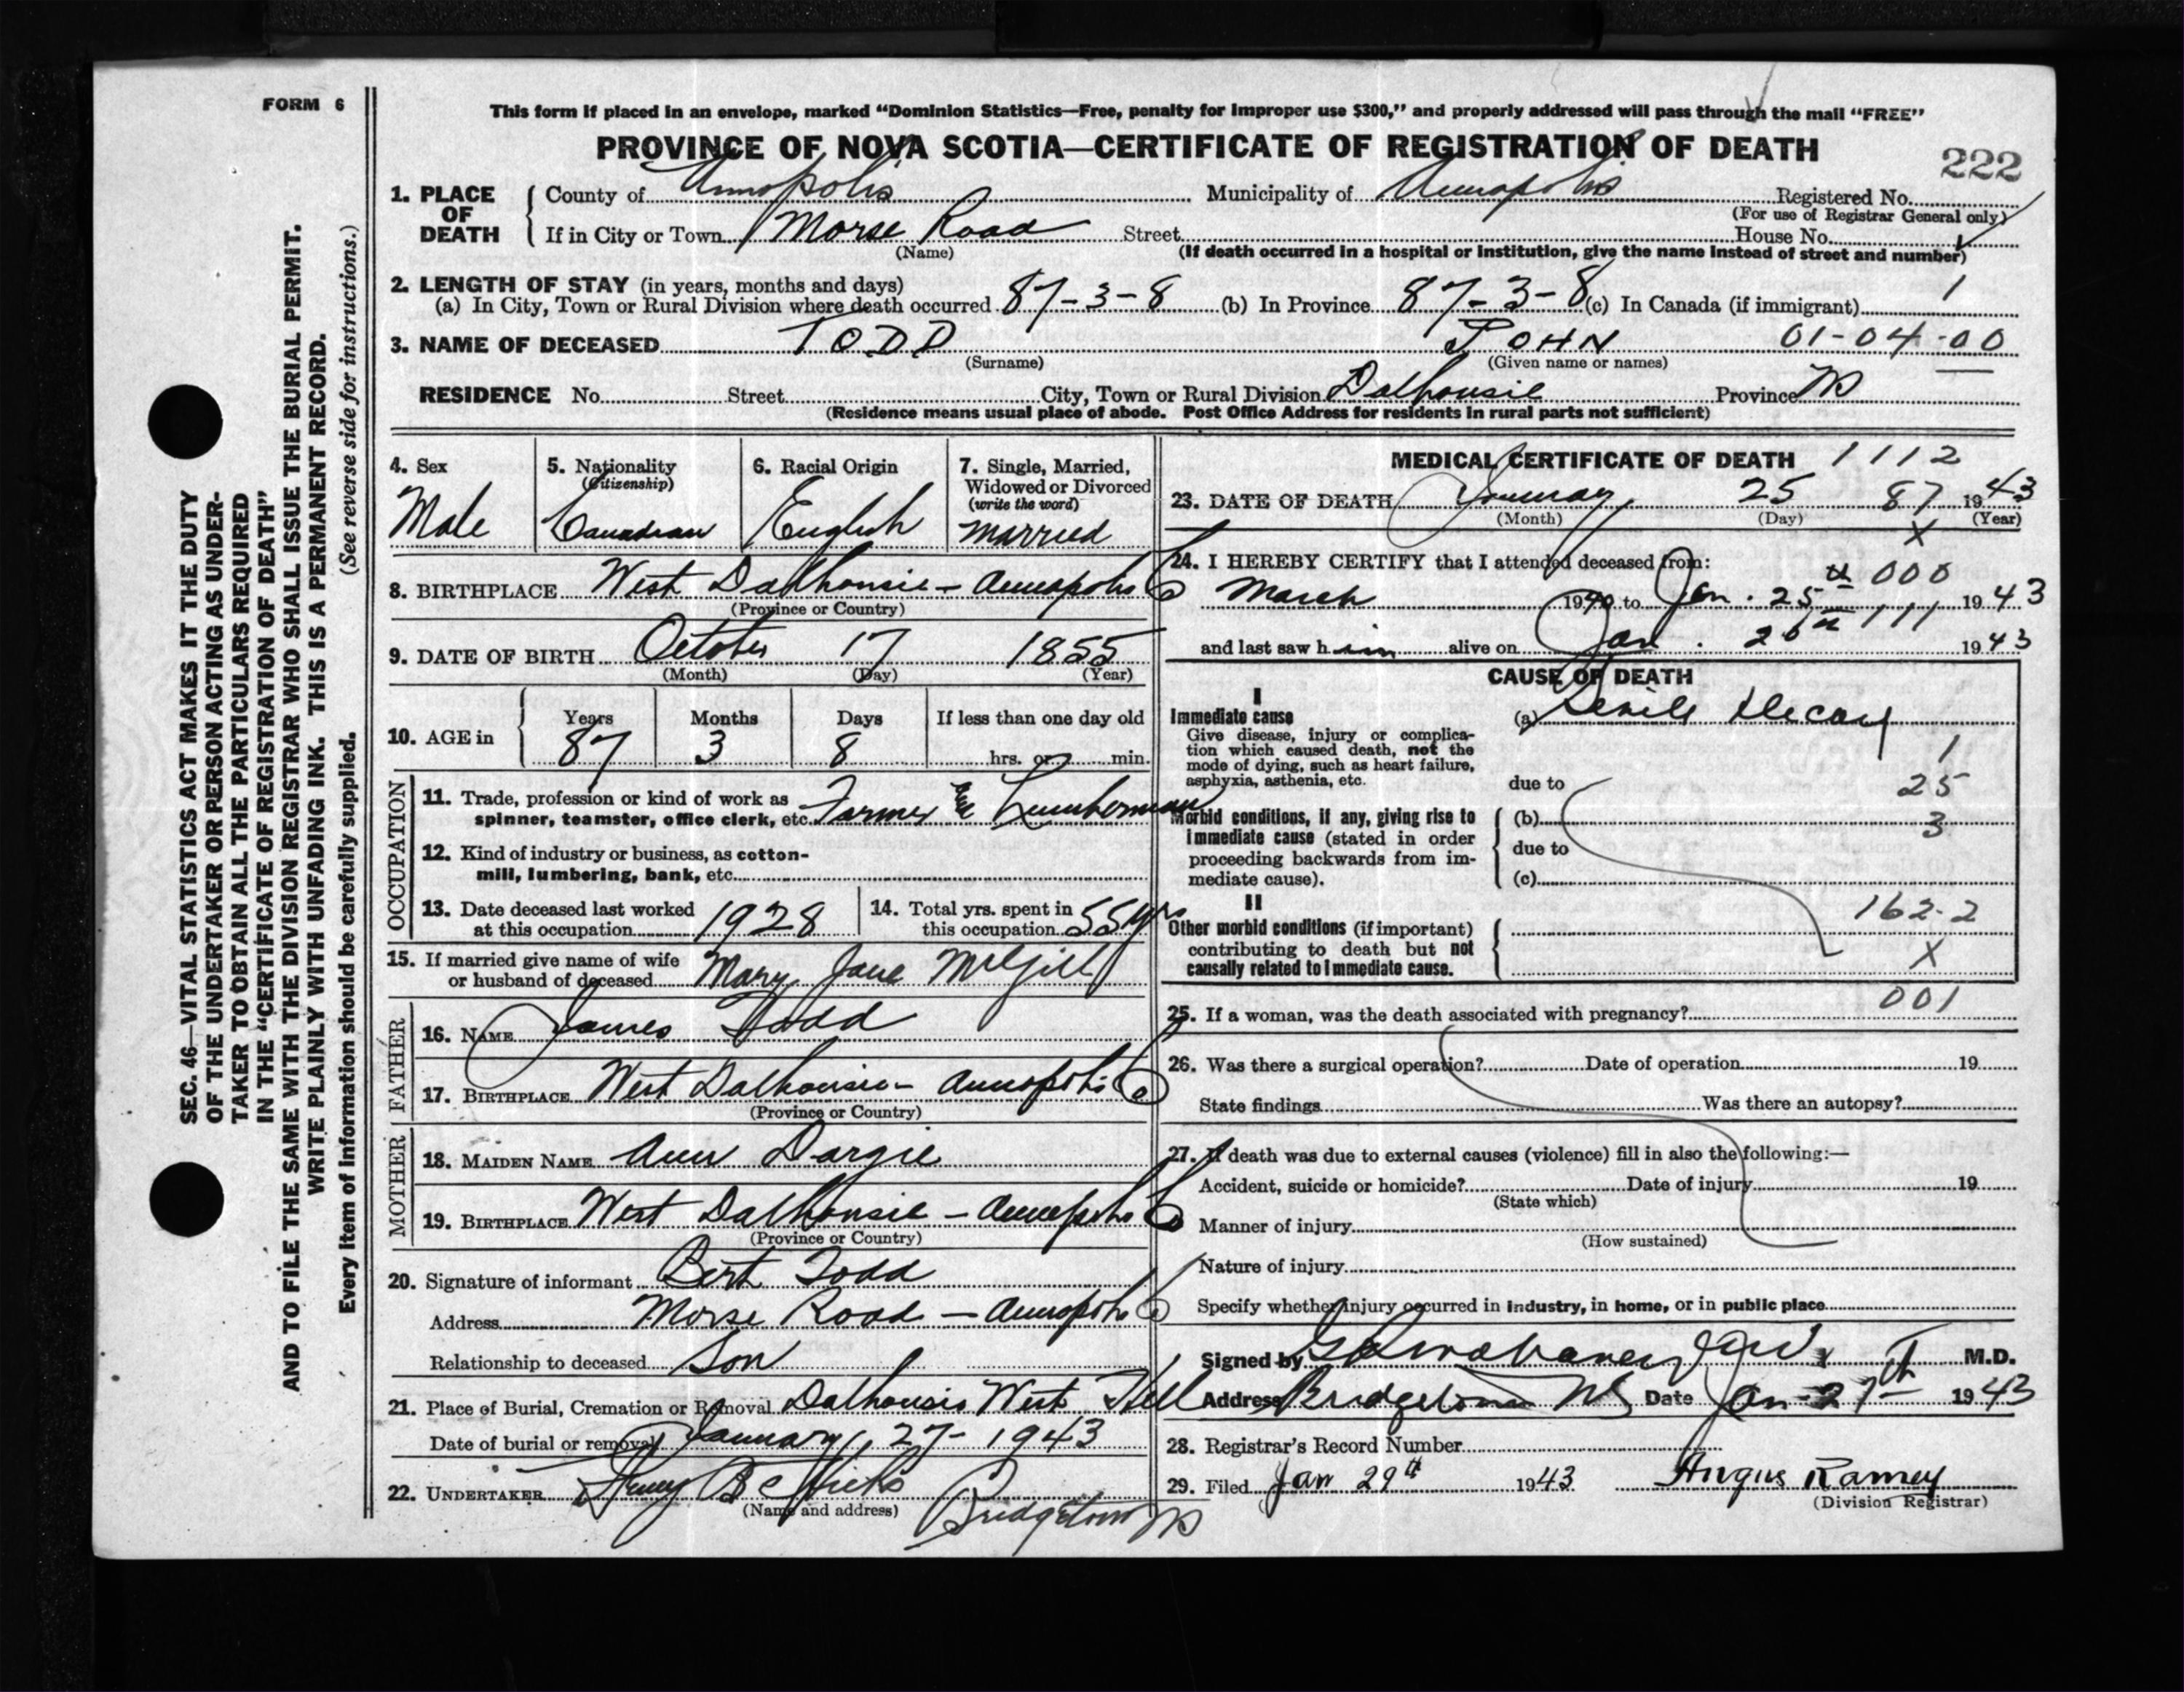 FORM 6
This form if placed in an envelope, marked “Dominion Statistics—Free, penalty for improper use $300,” and properly addressed will pass through the mail “FREE”
PROVINCE OF NOVA SCOTIA—CERTIFICATE OF REGISTRATION OF DEATH
222
1. PLACE OF DEATH County of Annapolis Municipality of Annapolis Registered No.
(For use of Registrar General only)
If in City or Town Morse Road Street House No.
(Name) (If death occurred in a hospital or institution, give the name instead of street and number)
2. LENGTH OF STAY (in years, months and days)
(a) In City, Town or Rural Division where death occurred 87-3-8 (b) In Province 87-3-8 (c) In Canada (if immigrant) 1
3. NAME OF DECEASED TODD JOHN 01-04-00
(Surname) (Given name or names)
RESIDENCE No. Street City, Town or Rural Division Dalhousie Province NS
(Residence means usual place of abode. Post Office Address for residents in rural parts not sufficient)
4. Sex Male
5. Nationality (Citizenship) Canadian
6. Racial Origin English
7. Single, Married, Widowed or Divorced (write the word) married
8. BIRTHPLACE West Dalhousie - Annapolis Co
(Province or Country)
9. DATE OF BIRTH October 17 1855
(Month) (Day) (Year)
10. AGE in Years 87 Months 3 Days 8 If less than one day old hrs. or min.
OCCUPATION
11. Trade, profession or kind of work as
spinner, teamster, office clerk, etc. Farmer & Lumberman
12. Kind of industry or business, as cotton-
mill, lumbering, bank, etc.
13. Date deceased last worked at this occupation 1928
14. Total yrs. spent in this occupation 55 yrs
15. If married give name of wife
or husband of deceased Mary Jane McGill
FATHER
16. NAME James Todd
17. BIRTHPLACE West Dalhousie - Annapolis Co
(Province or Country)
MOTHER
18. MAIDEN NAME Ann Dargie
19. BIRTHPLACE West Dalhousie - Annapolis Co
(Province or Country)
20. Signature of informant Bert Todd
Address Morse Road - Annapolis Co
Relationship to deceased Son
21. Place of Burial, Cremation or Removal Dalhousie West Hill
Date of burial or removal January 27-1943
22. UNDERTAKER Hicks
(Name and address) Bridgetown NS
MEDICAL CERTIFICATE OF DEATH 1112
23. DATE OF DEATH January 25 87 1943
(Month) (Day) (Year)
X
24. I HEREBY CERTIFY that I attended deceased from:
000
March 1940 to Jan. 25th 1943
111
and last saw him alive on Jan. 1943
CAUSE OF DEATH
I
Immediate cause (a) Senile Decay
Give disease, injury or complica-
tion which caused death, not the
mode of dying, such as heart failure,
asphyxia, asthenia, etc. due to
1
25
3
Morbid conditions, if any, giving rise to (b)
immediate cause (stated in order due to
proceeding backwards from im- (c)
mediate cause).
II
162-2
Other morbid conditions (if important)
contributing to death but not X
causally related to immediate cause.
001
25. If a woman, was the death associated with pregnancy?
26. Was there a surgical operation? Date of operation 19
State findings Was there an autopsy?
27. If death was due to external causes (violence) fill in also the following:—
Accident, suicide or homicide? Date of injury 19
(State which)
Manner of injury
(How sustained)
Nature of injury
Specify whether injury occurred in industry, in home, or in public place
Signed by M.D.
Address Bridgetown NS Date Jan-27th 1943
28. Registrar's Record Number
29. Filed Jan 29th 1943 Angus Ramey
(Division Registrar)
SEC. 46—VITAL STATISTICS ACT MAKES IT THE DUTY
OF THE UNDERTAKER OR PERSON ACTING AS UNDER-
TAKER TO OBTAIN ALL THE PARTICULARS REQUIRED
IN THE “CERTIFICATE OF REGISTRATION OF DEATH”
AND TO FILE THE SAME WITH THE DIVISION REGISTRAR WHO SHALL ISSUE THE BURIAL PERMIT.
WRITE PLAINLY WITH UNFADING INK. THIS IS A PERMANENT RECORD.
Every item of information should be carefully supplied. (See reverse side for instructions.)